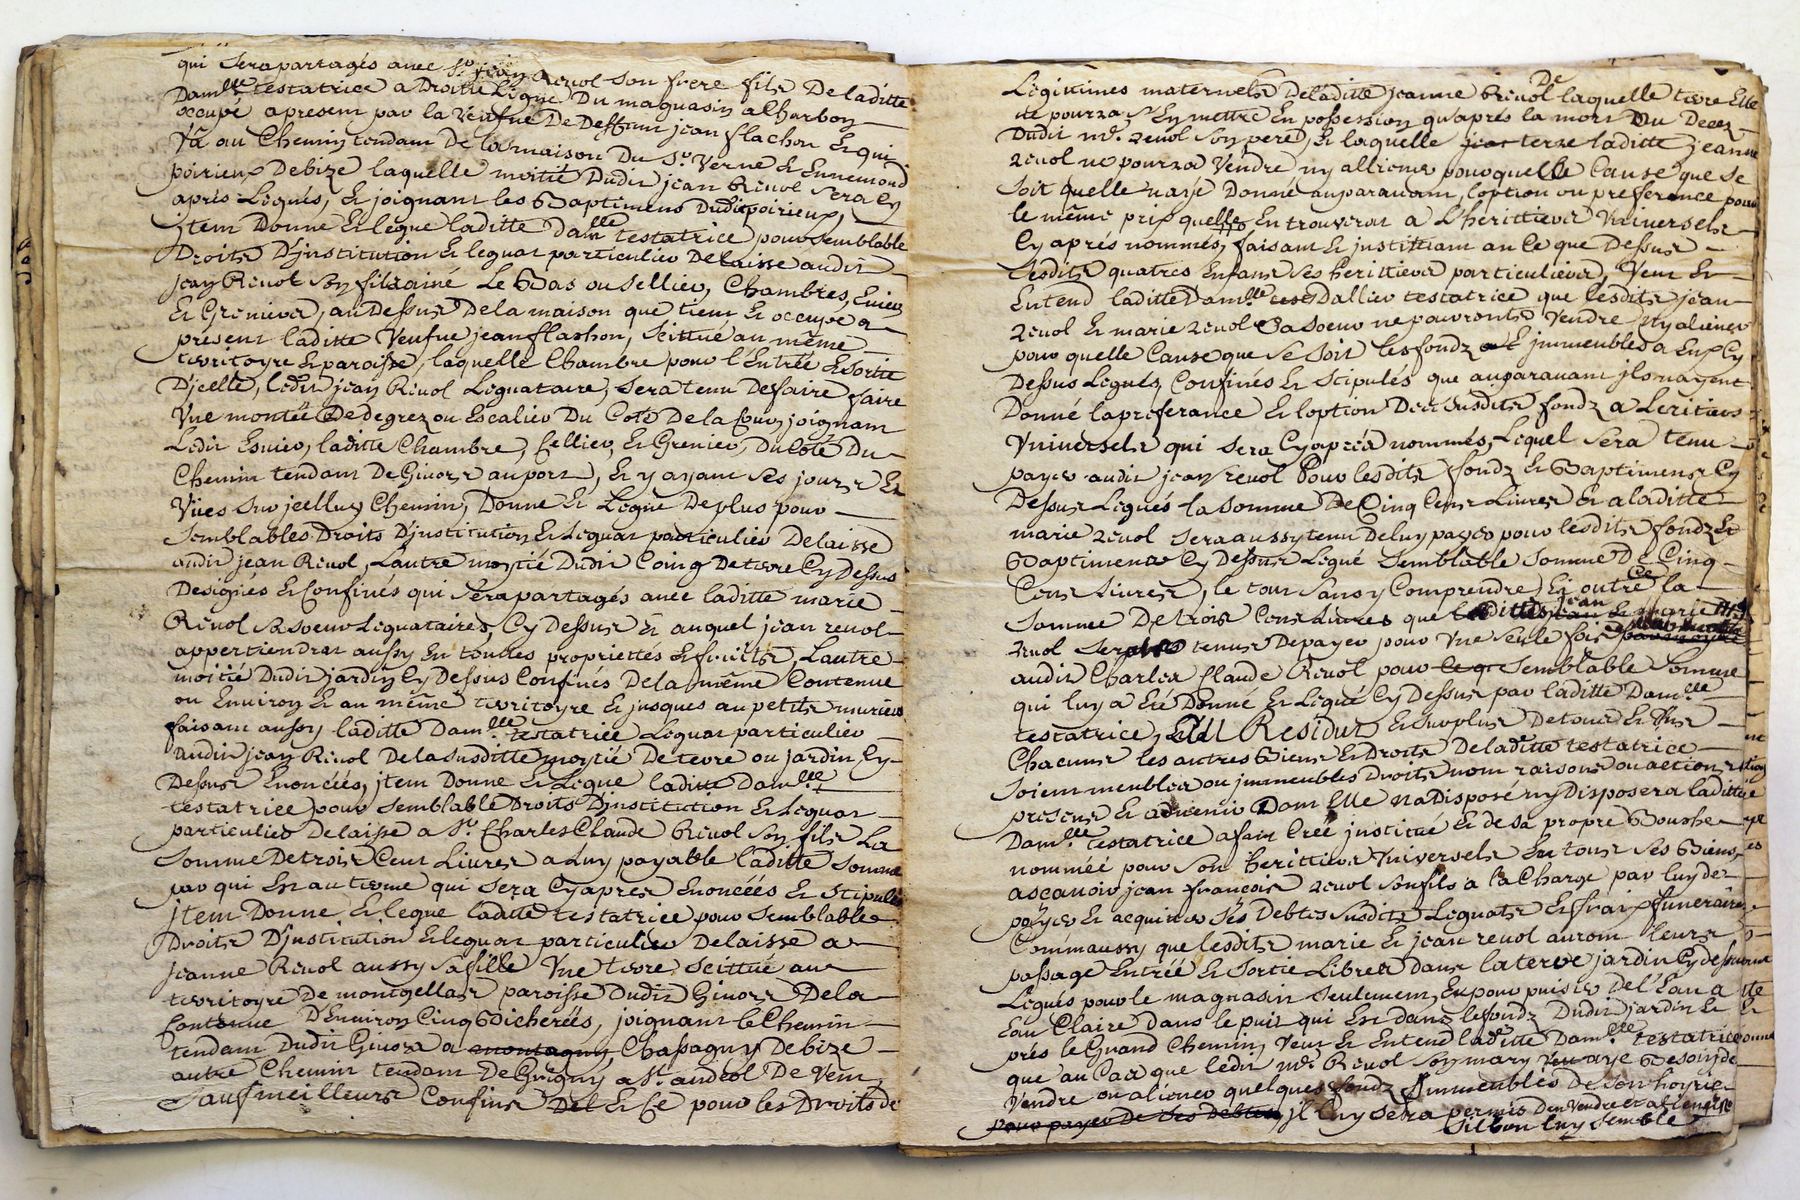 qui sera partagés avec Sr. jean Revol son frere fils De laditte
Damlle testatrice a Droitte Ligne Du magnasin a Charbon
occupé apresent par la Veufve De Deffunt jean flachon Et qui
Va au Chemin tendant De la maison Du Sr. Verne Et Ennemond
poirieux De bize laquelle moitié Dudit jean Revol sera Cy
aprés Legués, Et joignant les Baptimens Dudit poirieux,
jtem Donne Et Legue laditte Damlle testatrice pour semblable
Droits D'jnstitution Et leguat particulier Delaisse audit
jean Revol son fils ainé Le Bas ou sellier, Chambres, Evier
Et Grenier, au Dessus De la maison que tient Et occupe a
present laditte Veufve jean flashon, scittué au même
territoyre Et paroisse, laquelle Chambre pour l'Entrée Et sortie
D'jcelle, ledit jean Revol Leguataire, sera tenu De faire faire
Vne montée De degrez ou Escalier Du Coté De la Cour joignant
Ledit Esvier, laditte Chambre, Cellier, Et Grenier, Du Côté Du
Chemin tendant De Givors au port, Et y ayant ses jours Et
Vües sur jcelluy Chemin, Donne Et Legue De plus pour
semblables Droits D'jnstitution Et Leguat particulier Delaisse
audit jean Revol, Lautre moytié Dudit Coing De terre Cy Dessus
Designés Et Confinés qui sera partagés avec laditte marie
Revol sa soeur Leguataires, Cy Dessus Et auquel jean revol
appertiendrat aussy En toutes propriettés Et fruits, Lautre
moitié Dudit jardin Cy Dessus Confinés De la même Contenue
ou Environ Et au même territoyre Et jusques au petits muriers
faisant aussy laditte Damlle testatrice Leguat particulier
audit jean Revol De la susditte moytié De terre ou jardin Cy
Dessus Enoncéés, jtem Donne Et Legue laditte Damlle
testatrice pour semblable Droits D'jnstitution Et Leguat
particulier Delaisse a Sr. Charles Claude Revol son fils La
somme De trois Cent Livres a Luy payable laditte somme
par qui Et au terme qui sera Cy apres Enoncéés Et stipulés
jtem Donne Et legue laditte testatrice pour semblable
Droits D'jnstitution Et leguat particulier Delaisse a
jeanne Revol aussy sa fille Vne terre scittué au
territoyre De montgellas paroisse Dudit Givors De la
Contenue D'Environ Cinq Bicheréés, joignant le Chemin
tendant Dudit Givors a montagny Chassagny De bize
autre Chemin tendant De Grigny a St. andeol De Vent,
Sauf meilleurs Confins Et Ce pour les Droits de
Legitimes maternels De laditte jeanne Revol De laquelle terre Elle
ne pourra s'En mettre En possession qu'aprés la mort Du Decez
Dudit mr. revol son pere, Et laquelle terre laditte jeanne
revol ne pourra Vendre ny alliener pour quelle Cause que se
soit quelle naye Donné auparavant l'option ou presference pour
le même prix quelle En trouverat a L'herittier Vniversels
Cy aprés nommés, faisant Et jnstituant au Ce que Dessus
Lesdits quatres Enfans ses herittiers particuliers, Veut Et
Entend laditte Damlle Dallier testatrice que lesdits jean
revol Et marie revol sa soeur ne pouvronts Vendre ny aliener
pour quelle Cause que se soit les fondz Et jmmeubles a Eux Cy
Dessus Legués, Confinés Et stipulés que auparavant jls nayent
Donné la preferance Et loption Des susdits fondz a Leritiers
Vniversels qui sera Cy aprés nommés, Lequel sera tenu
payer audit jean revol Pour lesdits fondz Et Baptimens Cy
Dessus Legués la somme De Cinq Cens Livres Et a laditte
marie revol sera aussy tenu De luy payer pour lesdits fondz Et
Baptiments Cy Dessus Legué semblable somme De Cinq
Cens Livres, le tout sans y Comprendre En outre Ce la
somme De trois Cens Livres que jean Et marie
revol tenus De payer pour Vne seule fois
audit Charles Claude Revol pour semblable somme
qui luy a Eté Donné Et Legué Cy Dessus par laditte Damlle
testatrice, Au Residut Et surplus De tous Et Vns
Chacuns les autres Biens Et Droits De laditte testatrice
soient meubles ou jmmeubles Droits nom raisons ou actions
presens Et advenir Dont Elle na Disposé ny Disposera laditte
Damlle testatrice a fait Créé jnstitué Et de sa propre Boushe
nommée pour son herittier Vniversels En tous ses Biens
ascavoir jean françois revol son fils a la Charge par luy de
payer Et acquiter ses Debtes susdits Leguats Et fraix funeraires
Comm aussy que lesdits marie Et jean revol auront leurs
passage Entréé Et sortie Libres dans la terre jardin Cy dessus
Legués pour le magnasin seulement, Et pour puiser De l'Eau a
Eau Claire dans le puit qui Est dans le fondz Dudit jardin Et
prés le Grand Chemin, Veut Et Entend laditte Damlle testatrice
que au Cas que ledit mr. Revol son mary aye Besoin de
Vendre ou aliener quelques fondz jmmeubles de son hoyrie
pour payer De ses Debtes, jl luy sera permis den Vendre et aliener
Silbon luy semble